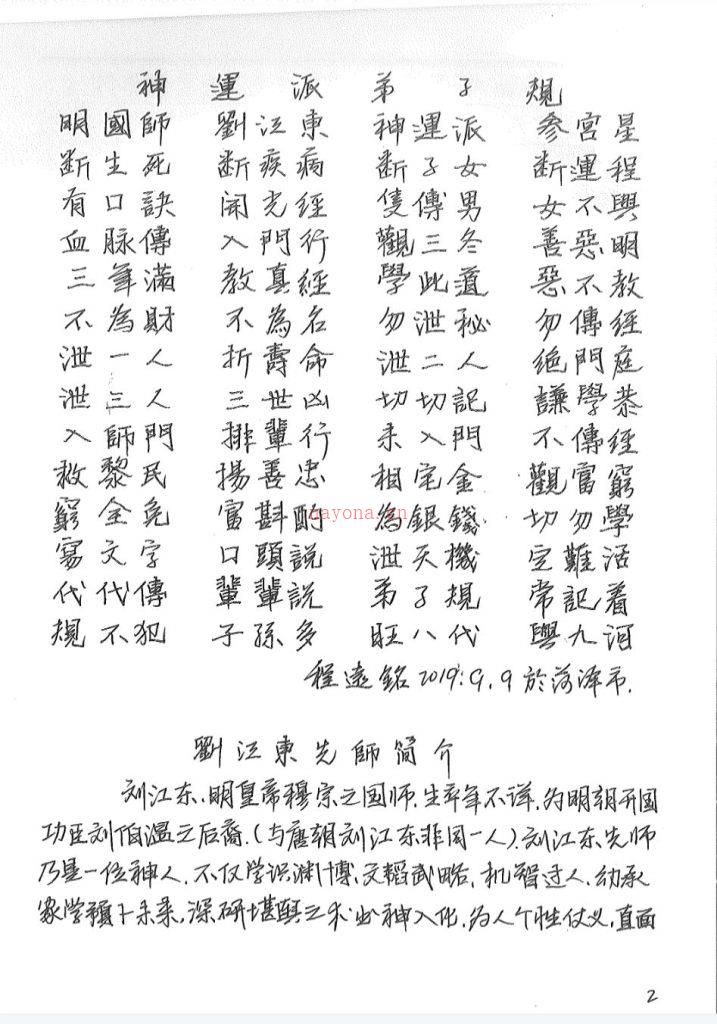 神運派弟子規
明國師 劉江東 神運派 參宮星
断生死 断疾病 断子女 断運程
有口訣 開光經 隻傳男 女不與
血脉傳 入門行 觀三冬 善惡明
三年滿 教真經 學此道 惡不教
不為財 不為名 勿泄秘 勿傳經
泄一人 折壽命 泄二人 绝門庭
泄三人 三世凶 切切記 謙學恭
入師門 排輩行 未入門 不傳經
救黎民 揚善忠 相宅金 觀富窮
窮全免 富斟酌 為銀錢 切勿學
寫文字 口頭説 泄天機 定難活
代代傳 輩輩説 弟子規 常記着
規不犯 子孫多 旺八代 與九河
程遠銘 2019.9.9 於菏泽市.
劉江東先師简介
刘江东、明皇帝穆宗之国师.生卒年不详.为明朝开国
功臣刘伯温之后裔.(与唐朝刘江东非同一人).刘江东先师
乃是一位神人.不仅学识渊博、文韬武略,机智过人.幼承
家学预卜未来,深研堪舆之术出神入化,为人个性仗义,直面
2